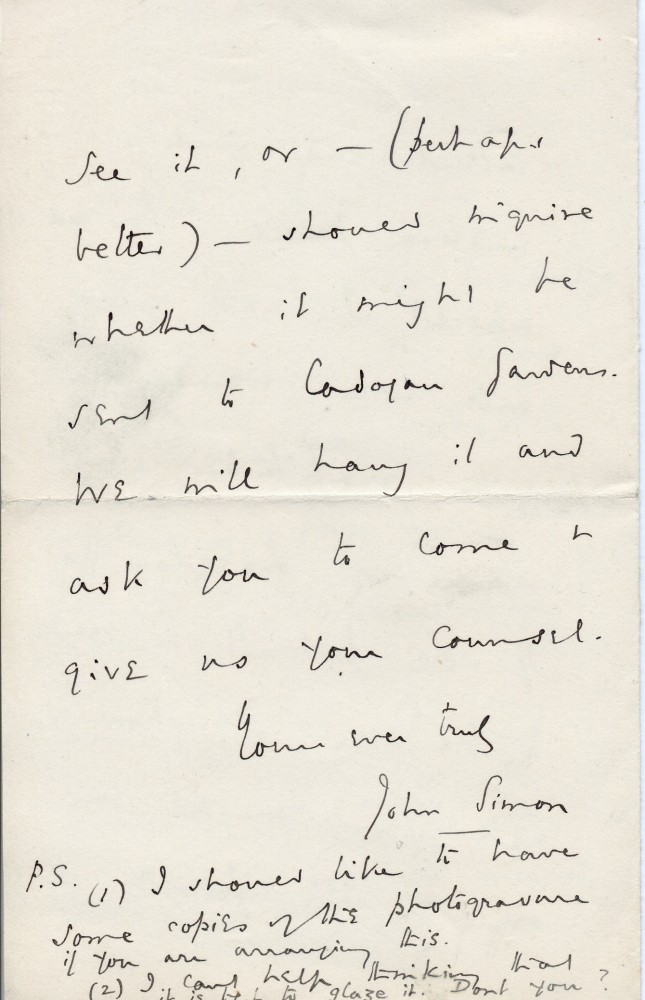 see it, or — (perhaps
better) — should inquire
whether it might be
sent to Cadogan Gardens.
We will hang it and
ask you to come &
give us your counsel.
Yours ever truly
John Simon
P.S. (1) I should like to have
some copies of the photogravure
if you are arranging this.
(2) I can't help thinking that
it is best to glaze it. Don't you?